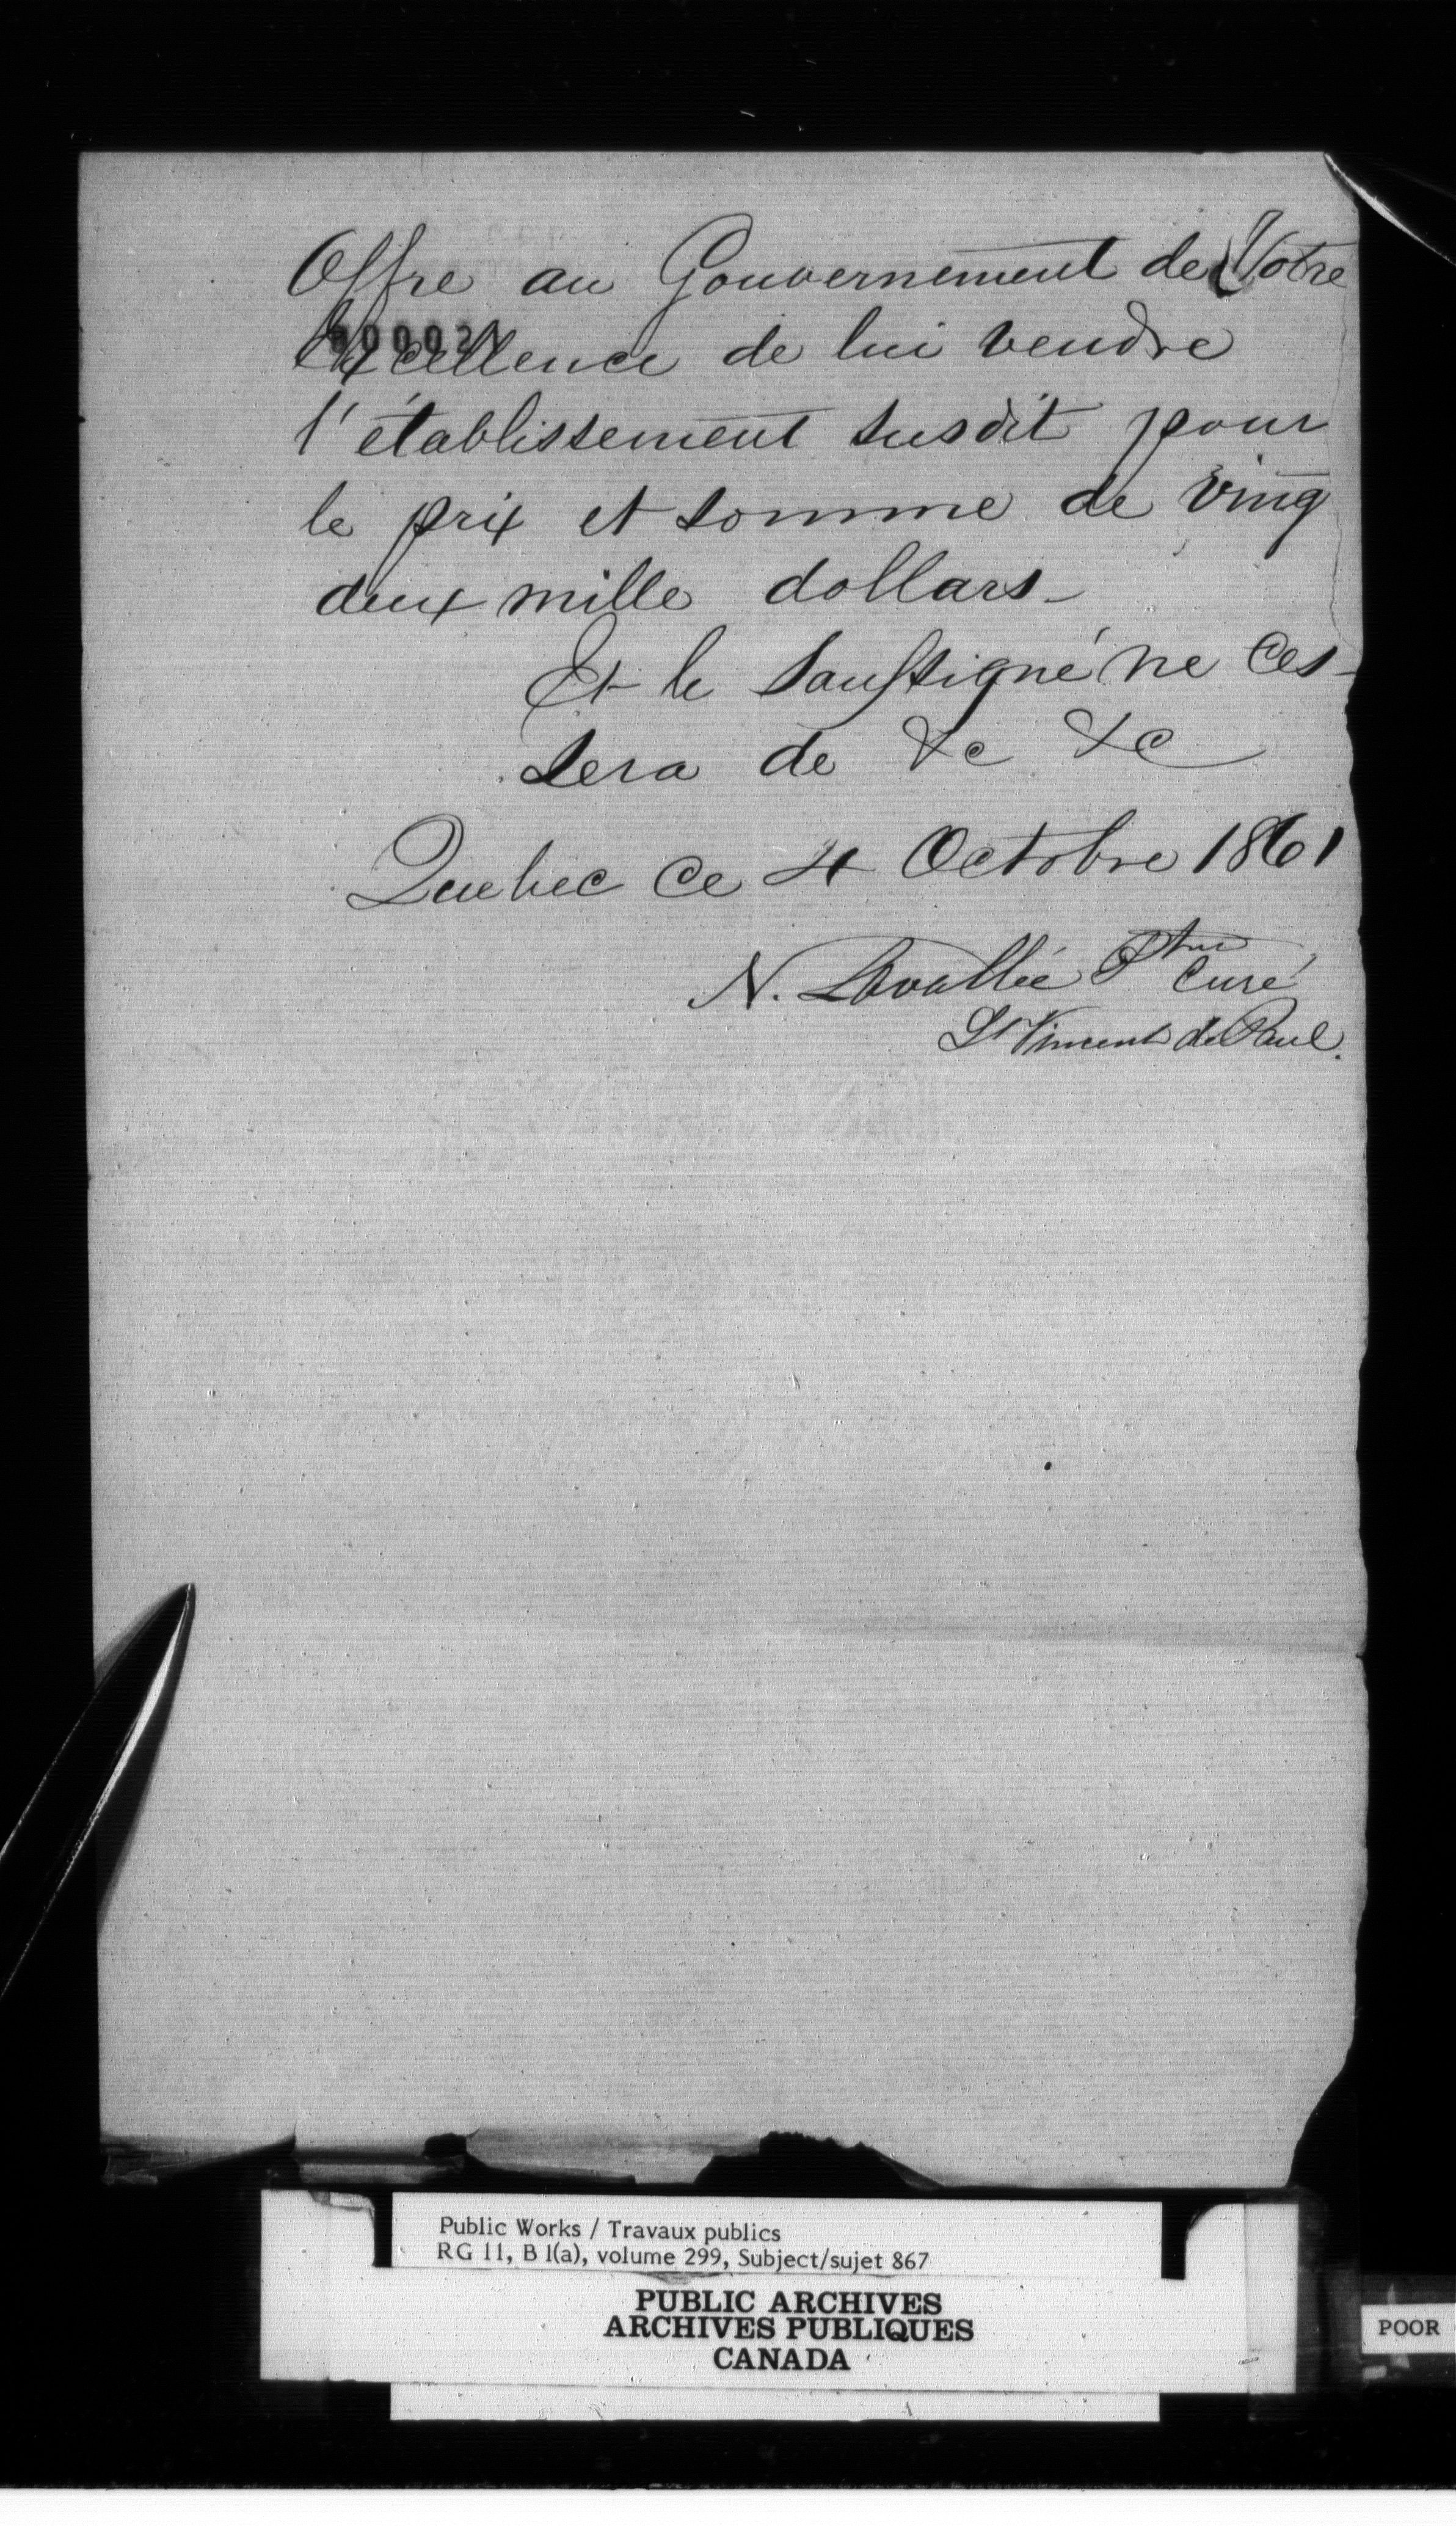 Offre au Gouvernement de Votre
Excellence de lui vendre
l'établissement susdit pour
le prix et somme de ving
deux mille dollars_
Et le Soussigné ne ces-
sera de &c &c
Quebec ce 4 Octobre 1861
N. Lavallée Ptre
Curé
St Vincent de Paul.
Public Works / Travaux publics
RG 11, B 1(a), volume 299, Subject/sujet 867
PUBLIC ARCHIVES
ARCHIVES PUBLIQUES
CANADA
POOR